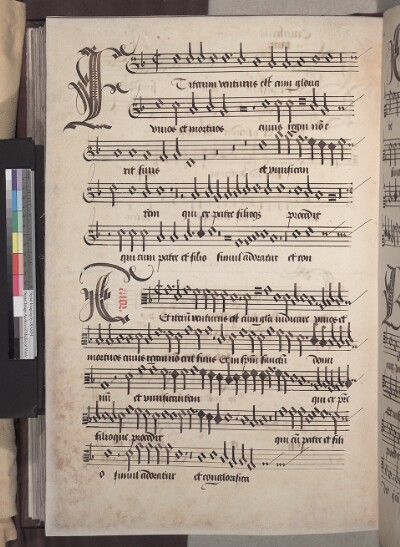 T iterum venturus est cum gloria
vivos et mortuos cuius regni nō e
rit finis et vivifican
tem qui ex patre filioqȝ procedit
qui cum patre et filio simul adoratur et con
Et iterū venturus est cum glīa iudicare vivos et
mortuos cuius regni nō erit finis Et in spm sanctū Domi
nū et vivificantem qui ex pre
filioque procedit qui cū patre et fili
o simul adoratur et conglorifica